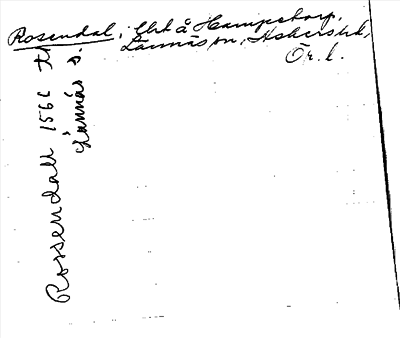 Rosendal, lht å Hampetorp,
Lännäs sn, Askers hd,
Ör. l.
Rossendall 1566 tl
Lännäs s: